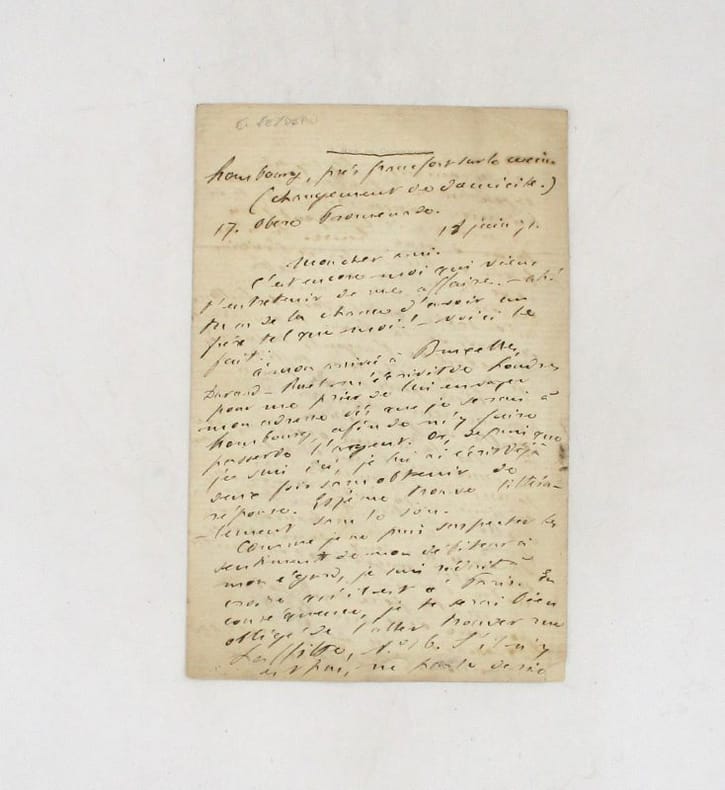 hombourg, près francfort sur le mein
(changement de domicile.)
17. Obere Promenade.
18 juin 71.
Mon cher ami.
C'est encore moi qui viens
t'entretenir de mes affaires. —
tu as de la chance d'avoir un
père tel que moi! — Voici le
fait:
à mon arrivée à Bruxelles,
Durand-Ruel m'écrivit de Londres
pour me prier de lui envoyer
mon adresse dès que je serais à
hombourg, afin de m'y faire
passer de l'argent. Or, depuis que
je suis ici, je lui ai écrit déjà
deux fois sans obtenir de
réponse. Et je me trouve littéra-
-lement sans le sou.
Comme je ne puis suspecter les
sentiments de mon débiteur à
mon égard, je suis réduit à
croire qu'il est à Paris. En
conséquence, je te serai bien
obligé de l'aller trouver rue
Laffitte, S'il n'y
est pas, ne parle de rien